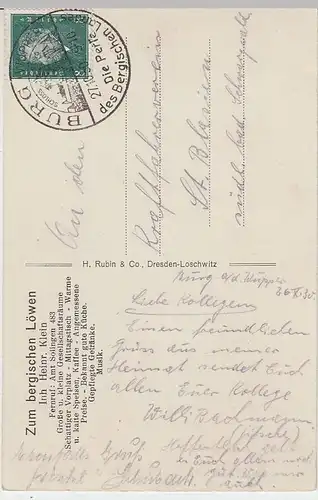 BURG
Die Perle
des Bergischen Landes
An den
Kraftfahrerverein
St. Blasien
südl. bad. Schwarzwald
H. Rubin & Co., Dresden-Loschwitz
Zum bergischen Löwen
Inh. Heinr. Klein
Fernruf: Amt Solingen 483
Große u. kleine Gesellschaftsräume
Schattiger Vorplatz - Mittagstisch - Warme
u. kalte Speisen, Kaffee - Angemessene
Preise. - Bekannt gute Küche.
Gepflegte Getränke.
Musik.
Burg a/d. Wupper
Liebe Kollegen
Einen freundlichen
Gruss aus meiner
Heimat sendet Euch
allen Euer Kollege
Willi Bachmann
Gruß Hoffentlich geht
es Euch allen noch
gut